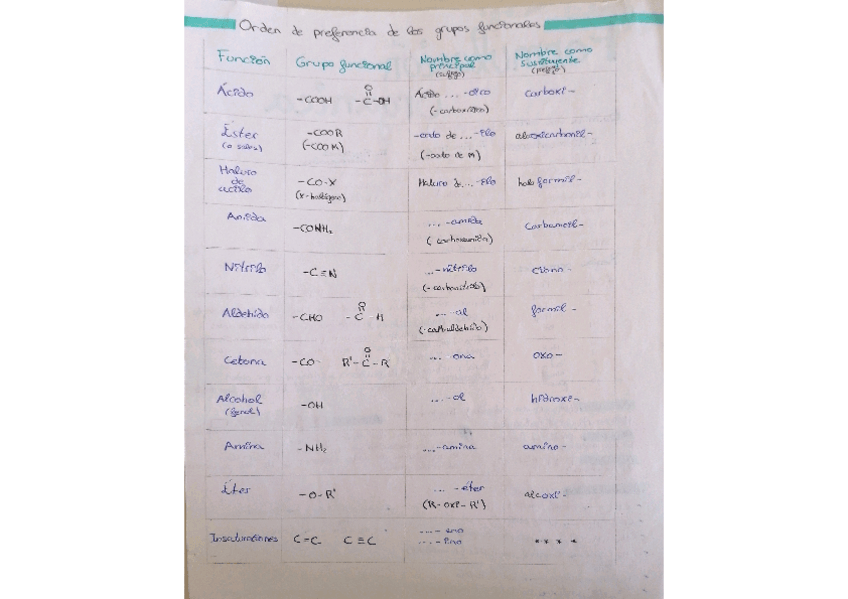 Orden de preferencia de los grupos funcionales
Función Grupo funcional Nombre como principal (sufijo) Nombre como substituyente (prefijo)
Ácido -COOH O
-C-OH Ácido ... -oico
(-carboxílico) carboxi-
Éster
(o sales) -COOR
(-COOM) -oato de ... -ilo
(-oato de M) alcoxicarbonil-
Haluro
de
acilo -CO-X
(X-halógeno) Haluro de ... -ilo haloformil-
Amida -CONH₂ ... -amida
(-carboxamida) Carbamoil-
Nitrilo -C≡N ... -nitrilo
(-carbonitrilo) ciano-
Aldehído -CHO O
-C H ... -al
(-carbaldehído) formil-
Cetona -CO- O
R'-C-R ... ona oxo-
Alcohol
(fenol) -OH ... -ol hidroxi-
Amina -NH₂ ... -amina amino-
Éter -O-R' ... -éter
(R-oxi-R') alcoxi-
Insaturaciones C=C C≡C ... -eno
... -ino * * * *